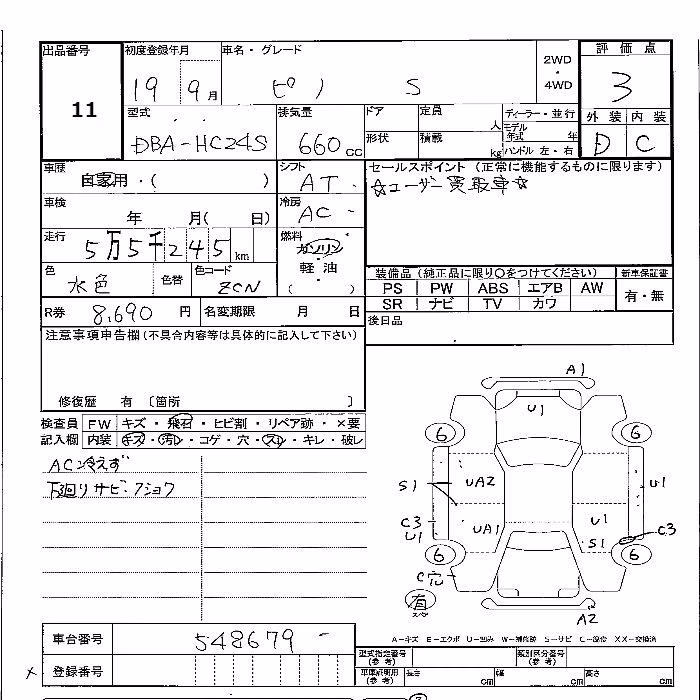 出品番号 11
初度登録年月 19 9月
車名・グレード ピノ S
2WD・4WD
評価点 3
外装 D 内装 C
型式 DBA-HC24S
排気量 660cc
ドア 定員 人
形状 積載 kg
ディーラー・並行
モデル年式 年
ハンドル 左・右
車歴 自家用・( )
シフト AT
セールスポイント (正常に機能するものに限ります)
☆ユーザー買取車☆
車検 年 月( 日)
冷房 AC
走行 5万5千245km
燃料 ガソリン
軽・油
( )
色 水色 色替 色コード ZCN
装備品(純正品に限り○をつけてください) 新車保証書
PS PW ABS エアB AW
SR ナビ TV カワ
有・無
R券 8,690 円 名変期限 月 日
後日品
注意事項申告欄(不具合内容等は具体的に記入して下さい)
修復歴 有 〔箇所 〕
検査員 FW キズ・飛石・ヒビ割・リペア跡・×要
記入欄 内装 キズ・汚れ・コゲ・穴・スレ・キレ・破レ
AC冷えず
下廻りサビ・フショク
A1
U1
6 6
S1 UA2 U1
C3 U1 UA1 U1 C3
S1
6 6
C穴
有
A2
A-キズ E-エクボ U-凹み W-補修跡 S-サビ C-腐食 XX-交換済
車台番号 548679
登録番号
×
型式指定番号(参考) 類別区分番号(参考)
車庫証明用(参考) 長さ cm 幅 cm 高さ cm